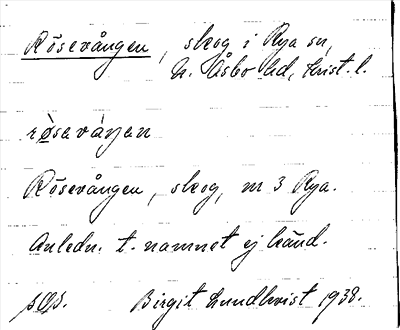 Rösevången, skog i Rya sn,
N. Åsbo hd, Krist. l.
rø̀sevàŋen
Rösevången, skog, nr 3 Rya.
Anledn. t. namnet ej känd.
Birgit Lundkvist 1938.